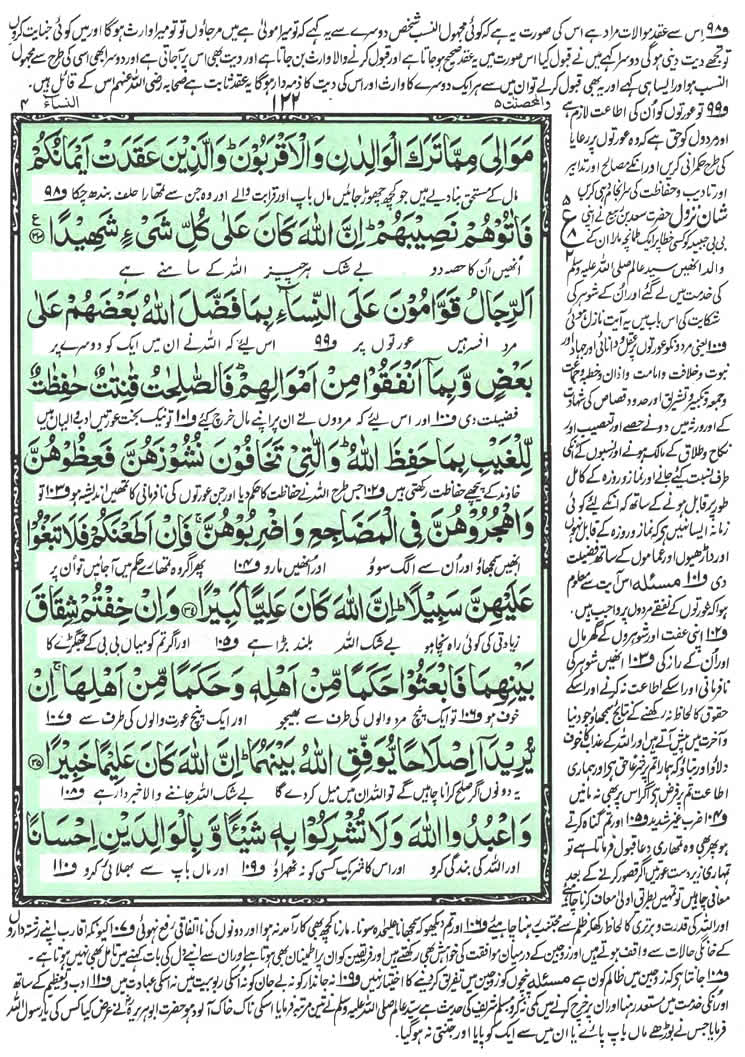 و۹۸ اس سے عقد موالات مراد ہے اس کی صورت یہ ہے کہ کوئی مجہول النسب شخص دوسرے سے یہ کہے کہ تو میرا مولٰی ہے میں مر جاؤں تو تو میرا وارث ہوگا اور میں کوئی جنایت کروں
تو تجھے دیت دینی ہوگی دوسرا کہے میں نے قبول کیا اس صورت میں یہ عقد صحیح ہوجاتا ہے اور قبول کرنے والا وارث بن جاتا ہے اور دیت بھی اس پر آجاتی ہے اور دوسرا بھی اسی کی طرح سے مجہول
النسب ہو اور ایسا ہی کہے اور یہ بھی قبول کرلے تو ان میں سے ہر ایک دوسرے کا وارث اور اس کی دیت کا ذمہ دار ہوگا یہ عقد ثابت ہے صحابہ رضی اللہ عنہم اس کے قائل ہیں۔
والمحصنت ۵
۱۲۲
النساء ۴
مَوَالِیَ مِمَّا تَرَكَ الْوَالِدٰنِ وَالْاَقْرَبُوْنَؕ وَالَّذِیْنَ عَقَدَتْ اَیْمَانُكُمْ
مال کے مستحق بنا دیے ہیں جو کچھ چھوڑ جائیں ماں باپ اور قرابت والے اور وہ جن سے تمہارا حلف بندھ چکا و۹۸
فَاٰتُوْهُمْ نَصِیْبَهُمْؕ اِنَّ اللّٰهَ كَانَ عَلٰى كُلِّ شَیْءٍ شَهِیْدًا
انھیں اُن کا حصہ دو بے شک ہر چیز اللہ کے سامنے ہے
اَلرِّجَالُ قَوّٰمُوْنَ عَلَى النِّسَآءِ بِمَا فَضَّلَ اللّٰهُ بَعْضَهُمْ عَلٰى
مرد افسر ہیں عورتوں پر و۹۹ اس لیے کہ اللہ نے ان میں ایک کو دوسرے پر
بَعْضٍ وَّ بِمَاۤ اَنْفَقُوْا مِنْ اَمْوَالِهِمْؕ فَالصّٰلِحٰتُ قٰنِتٰتٌ حٰفِظٰتٌ
فضیلت دی و۱۰۰ اور اس لیے کہ مردوں نے ان پر اپنے مال خرچ کیے و۱۰۱ تو نیک بخت عورتیں ادب والیاں ہیں
لِّلْغَیْبِ بِمَا حَفِظَ اللّٰهُؕ وَالّٰتِیْ تَخَافُوْنَ نُشُوْزَهُنَّ فَعِظُوْهُنَّ
خاوند کے پیچھے حفاظت رکھتی ہیں و۱۰۲ جس طرح اللہ نے حفاظت کا حکم دیا اور جن عورتوں کی نافرمانی کا تمھیں اندیشہ ہو و۱۰۳ تو
وَاهْجُرُوْهُنَّ فِی الْمَضَاجِعِ وَاضْرِبُوْهُنَّۚ فَاِنْ اَطَعْنَكُمْ فَلَا تَبْغُوْا
انھیں سمجھاؤ اور اُن سے الگ سوؤ اور انھیں مارو و۱۰۴ پھر اگر وہ تمھارے حکم میں آجائیں تو اُن پر
عَلَیْهِنَّ سَبِیْلًاؕ اِنَّ اللّٰهَ كَانَ عَلِیًّا كَبِیْرًا ۝۳۴ وَاِنْ خِفْتُمْ شِقَاقَ
زیادتی کی کوئی راہ نہ چاہو بے شک اللہ بلند بڑا ہے و۱۰۵ اور اگر تم کو میاں بی بی کے جھگڑے کا
بَیْنِهِمَا فَابْعَثُوْا حَكَمًا مِّنْ اَهْلِهٖ وَحَكَمًا مِّنْ اَهْلِهَاۚ اِنْ
خوف ہو و۱۰۶ تو ایک پنچ مرد والوں کی طرف سے بھیجو اور ایک پنچ عورت والوں کی طرف سے و۱۰۷
یُّرِیْدَاۤ اِصْلَاحًا یُّوَفِّقِ اللّٰهُ بَیْنَهُمَاؕ اِنَّ اللّٰهَ كَانَ عَلِیْمًا خَبِیْرًا ۝۳۵
یہ دونوں اگر صلح کرانا چاہیں گے تو اللہ ان میں میل کر دے گا بے شک اللہ جاننے والا خبردار ہے و۱۰۸
وَاعْبُدُوا اللّٰهَ وَلَا تُشْرِكُوْا بِهٖ شَیْــٴًـا وَّ بِالْوَالِدَیْنِ اِحْسَانًا
اور اللہ کی بندگی کرو اور اس کا شریک کسی کو نہ ٹھہراؤ و۱۰۹ اور ماں باپ سے بھلائی کرو و۱۱۰
و۹۹ تو عورتوں کو اُن کی اطاعت لازم ہے
اور مردوں کو حق ہے کہ وہ عورتوں پر رعایا
کی طرح حکمرانی کریں اور انکے مصالح اور تدابیر
اور تادیب و حفاظت کی سرانجام دہی کریں
شان نزول حضرت سعد بن ربیع نے اپنی
بی بی حبیبہ کو کسی خطا پر ایک طمانچہ مارا ان کے
والد انھیں سید عالم صلی اللہ علیہ وسلم
کی خدمت میں لے گئے اور اُن کے شوہر کی
شکایت کی اس باب میں یہ آیت نازل ہوئی
و۱۰۰ یعنی مردوں کو عورتوں پر عقل و دانائی اور جہاد اور
نبوت و خلافت و امامت و اذان و خطبہ و جماعت
و جمعہ و تکبیر و تشریق اور حدود قصاص کی شہادت
کے اور ورثہ میں دونے حصے اور تعصیب اور
نکاح و طلاق کے مالک ہونے اور نسبوں کے انکی
طرف نسبت کیے جانے اور نماز و روزہ کے کامل
طور پر قابل ہونے کے ساتھ کہ انکے لئے کوئی
زمانہ ایسا نہیں ہے کہ نماز و روزہ کے قابل نہ ہوں
اور داڑھیوں اور عماموں کے ساتھ فضیلت
دی و۱۰۱ مسئلہ اس آیت سے معلوم
ہوا کہ عورتوں کے نفقے مردوں پر واجب ہیں۔
و۱۰۲ اپنی عفت اور شوہروں کے گھر مال
اور اُن کے راز کی و۱۰۳ انھیں شوہر کی
نافرمانی اور اسکے اطاعت نہ کرنے اور اسکے
حقوق کا لحاظ نہ رکھنے کے نتائج سمجھاؤ جو دنیا
و آخرت میں پیش آتے ہیں اور اللہ کے عذاب کا خوف
دلاؤ اور بتاؤ کہ ہمارا تم پر شرعًا حق ہے اور ہماری
اطاعت تم پر فرض ہے اگر اس پر بھی نہ مانیں
و۱۰۴ ضرب غیر شدید و۱۰۵ اور تم گناہ کرتے
ہو پھر بھی وہ تمھاری دعا قبول فرماتا ہے تو
تمہاری زیردست عورتیں اگر قصور کرنے کے بعد
معافی چاہیں تو تمہیں بطریق اولٰی معاف کرنا چاہئے
اور اللہ کی قدرت و برتری کا لحاظ رکھ کر ظلم سے مجتنب رہنا چاہیے و۱۰۶ اور تم دیکھو کہ سمجھانا علیحدہ سونا۔ مارنا کچھ بھی کارآمد نہ ہوا اور دونوں کی نااتفاقی رفع نہ ہوئی و۱۰۷ کیونکہ اقارب اپنے رشتہ داروں
کے خانگی حالات سے واقف ہوتے ہیں اور زوجین کے درمیان موافقت کی خواہش بھی رکھتے ہیں اور فریقین کو ان پر اطمینان بھی ہوتا ہے اور ان سے اپنے دل کی بات کہنے میں تامل بھی نہیں ہوتا ہے۔
و۱۰۸ جانتا ہے کہ زوجین میں ظالم کون ہے مسئلہ پنچوں کو زوجین میں تفریق کر دینے کا اختیار نہیں و۱۰۹ نہ جاندار کو نہ بے جان کو نہ اسکی ربوبیت میں نہ اسکی عبادت میں و۱۱۰ ادب و تعظیم کے ساتھ
اور انکی خدمت میں مستعد رہنا اور ان پر خرچ کرنے میں کمی نہ کرو مسلم شریف کی حدیث ہے سید عالم صلی اللہ علیہ وسلم نے تین مرتبہ فرمایا اسکی ناک خاک آلود ہو حضرت ابوہریرہ نے عرض کیا کس کی یا رسول اللہ
فرمایا جس نے بوڑھے ماں باپ پائے یا ان میں سے ایک کو پایا اور جنتی نہ ہوگیا۔